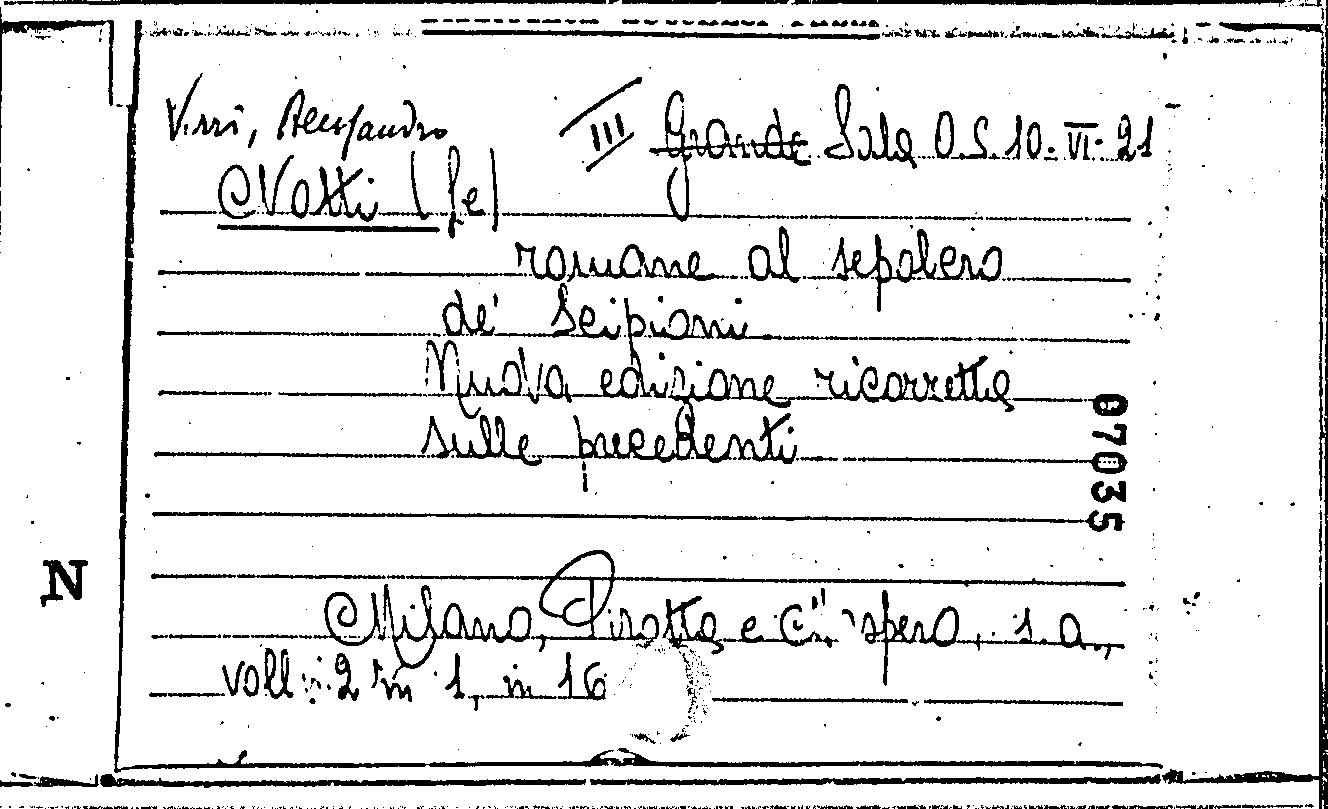 Verri, Alessandro III ~~Grande~~ Sala O.S. 10-VI-21
Notti (le)
romane al sepolcro
de' Scipioni
Nuova edizione ricorretta
sulle precedenti
07035
N
Milano, Pirotta e C.", 1. a.,
voll. 2 in 1, in 16